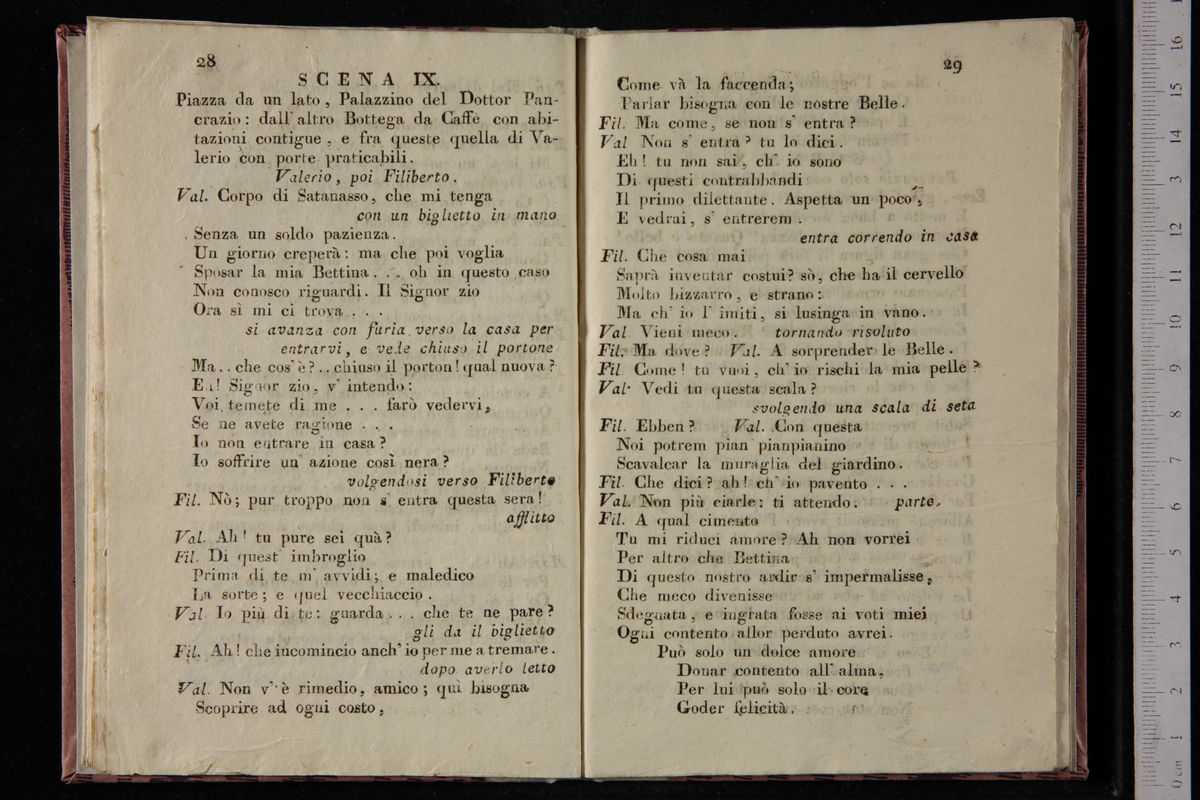 28
SCENA IX.
Piazza da un lato, Palazzino del Dottor Pan-
crazio: dall' altro Bottega da Caffè con abi-
tazioni contigue, e fra queste quella di Va-
lerio con porte praticabili.
Valerio, poi Filiberto.
Val. Corpo di Satanasso, che mi tenga
con un biglietto in mano
Senza un soldo pazienza.
Un giorno creperà: ma che poi voglia
Sposar la mia Bettina. . . oh in questo caso
Non conosco riguardi. Il Signor zio
Ora sì mi ci trova . . .
si avanza con furia verso la casa per
entrarvi, e vede chiuso il portone
Ma . . che cos' è? . . chiuso il porton! qual nuova?
Eh! Signor zio, v' intendo:
Voi temete di me . . . farò vedervi,
Se ne avete ragione . . .
Io non entrare in casa?
Io soffrire un' azione così nera?
volgendosi verso Filiberto
Fil. Nò; pur troppo non s' entra questa sera!
afflitto
Val. Ah! tu pure sei quà?
Fil. Di quest' imbroglio
Prima di te m' avvidi; e maledico
La sorte; e quel vecchiaccio.
Val Io più di te: guarda . . . che te ne pare?
gli da il biglietto
Fil. Ah! che incomincio anch' io per me a tremare.
dopo averlo letto
Val. Non v' è rimedio, amico; quì bisogna
Scoprire ad ogni costo,
29
Come và la faccenda;
Parlar bisogna con le nostre Belle.
Fil. Ma come, se non s' entra?
Val Non s' entra? tu lo dici.
Eh! tu non sai, ch' io sono
Di questi contrabbandi
Il primo dilettante. Aspetta un poco,
E vedrai, s' entrerem.
entra correndo in casa
Fil. Che cosa mai
Saprà inventar costui? sò, che ha il cervello
Molto bizzarro, e strano:
Ma ch' io l' imiti, si lusinga in vano.
Val Vieni meco. tornando risoluto
Fil. Ma dove? Val. A sorprender le Belle.
Fil Come! tu vuoi, ch' io rischi la mia pelle?
Val. Vedi tu questa scala?
svolgendo una scala di seta
Fil. Ebben? Val. Con questa
Noi potrem pian pianpianino
Scavalcar la muraglia del giardino.
Fil. Che dici? ah! ch' io pavento . . .
Val. Non più ciarle: ti attendo. parte.
Fil. A qual cimento
Tu mi riduci amore? Ah non vorrei
Per altro che Bettina
Di questo nostro ardir s' impermalisse,
Che meco divenisse
Sdegnata, e ingrata fosse ai voti miei
Ogni contento allor perduto avrei.
Può solo un dolce amore
Donar contento all' alma,
Per lui può solo il core
Goder felicità.